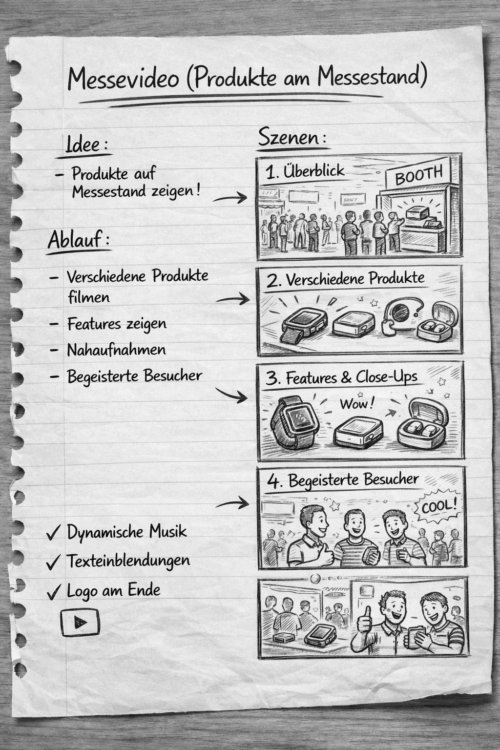 Messevideo (Produkte am Messestand)
Idee:
– Produkte auf
Messestand zeigen!
Ablauf:
– Verschiedene Produkte
filmen
– Features zeigen
– Nahaufnahmen
– Begeisterte Besucher
✓ Dynamische Musik
✓ Texteinblendungen
✓ Logo am Ende
Szenen:
1. Überblick
BOOTH
2. Verschiedene Produkte
3. Features & Close-Ups
Wow!
4. Begeisterte Besucher
COOL!